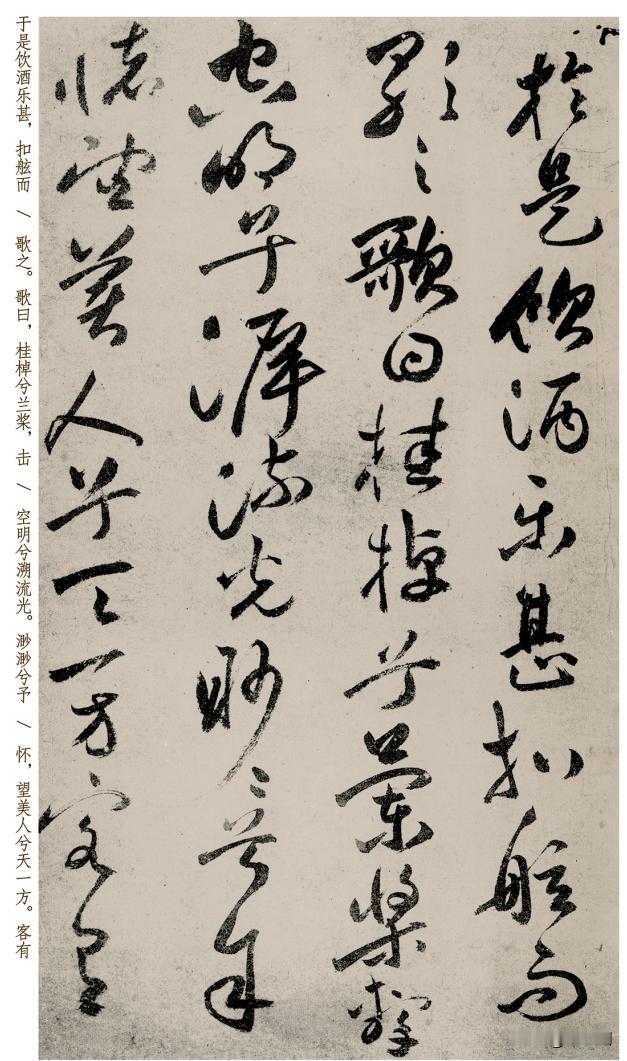 於是飲酒樂甚扣舷而
歌之歌曰桂棹兮蘭槳擊
空明兮泝流光渺渺兮予
懷望美人兮天一方客有
于是饮酒乐甚，扣舷而 / 歌之。歌曰，桂棹兮兰桨，击 / 空明兮溯流光。渺渺兮予 / 怀，望美人兮天一方。客有